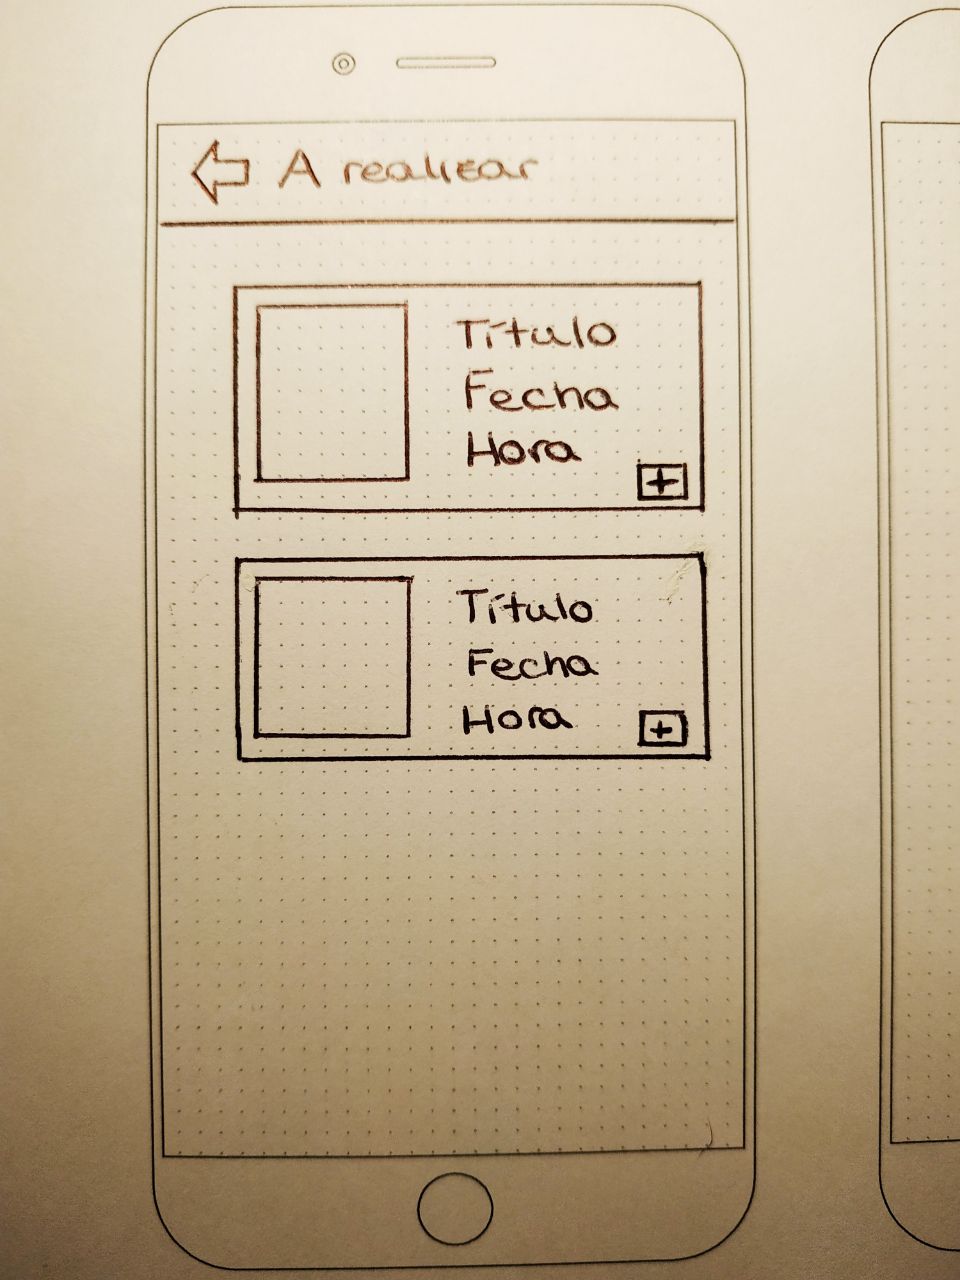 A realizar
Título
Fecha
Hora
+
Título
Fecha
Hora
+